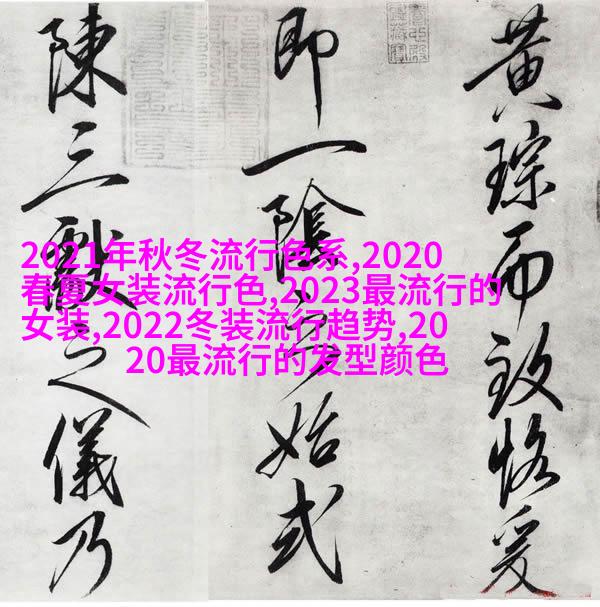 黄琮而致恪爰
即一陰始式
陳三獻之儀乃
2021年秋冬流行色系,2020
春夏女装流行色,2023最流行的
女装,2022冬装流行趋势,20
20最流行的发型颜色